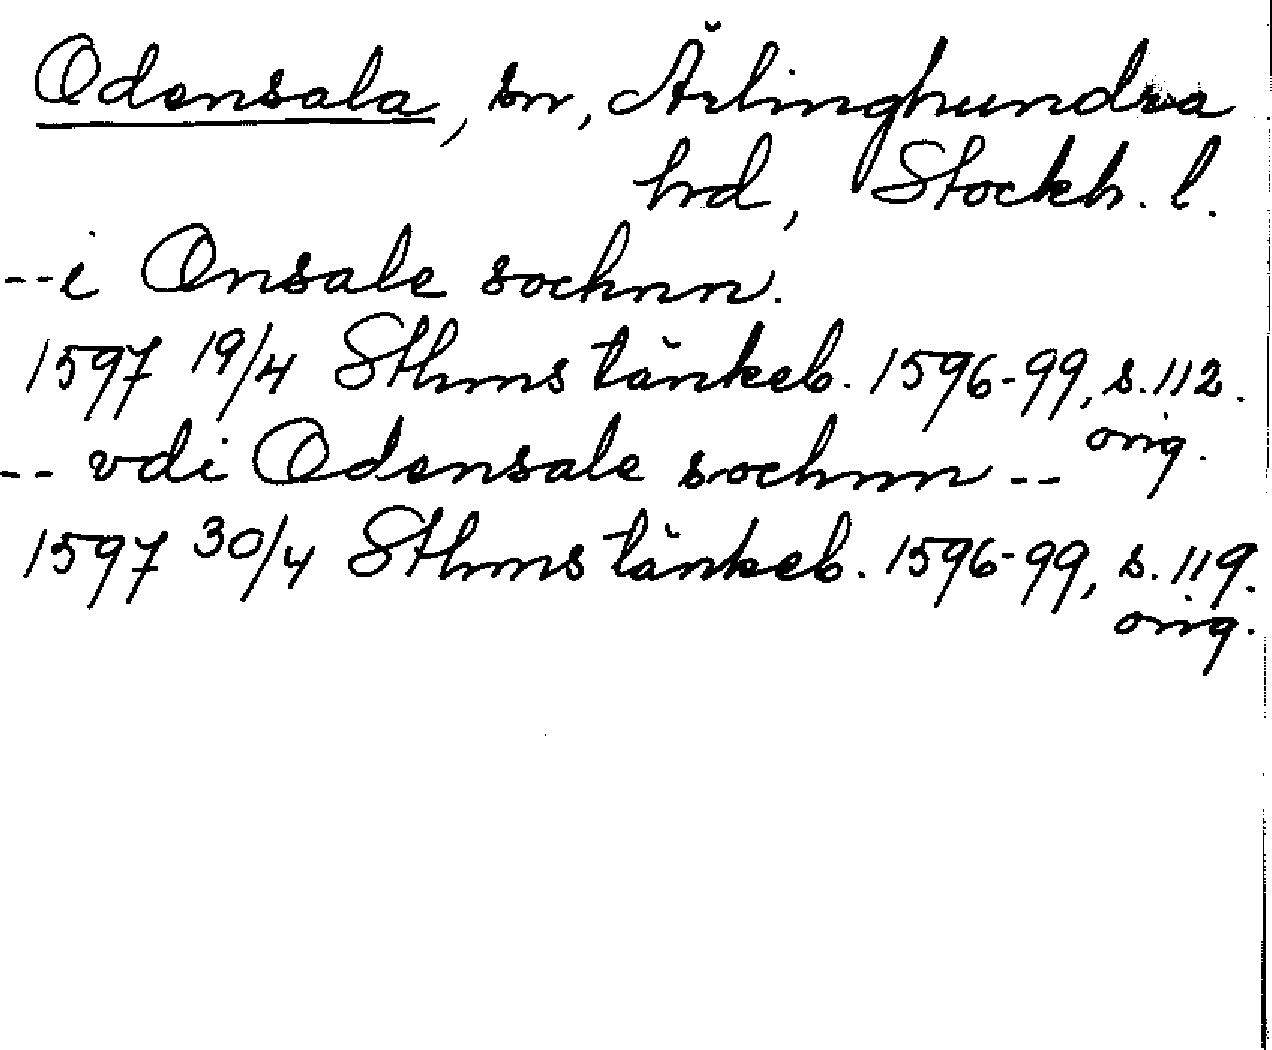 Odensala, sn, Ärlinghundra
hrd, Stockh. l.
--i Onsale sochnn.
1597 19/4 Sthms tänkeb. 1596-99, s. 112.
orig.
-- vdi Odensale sochnn --
1597 30/4 Sthms tänkeb. 1596-99, s. 119.
orig.